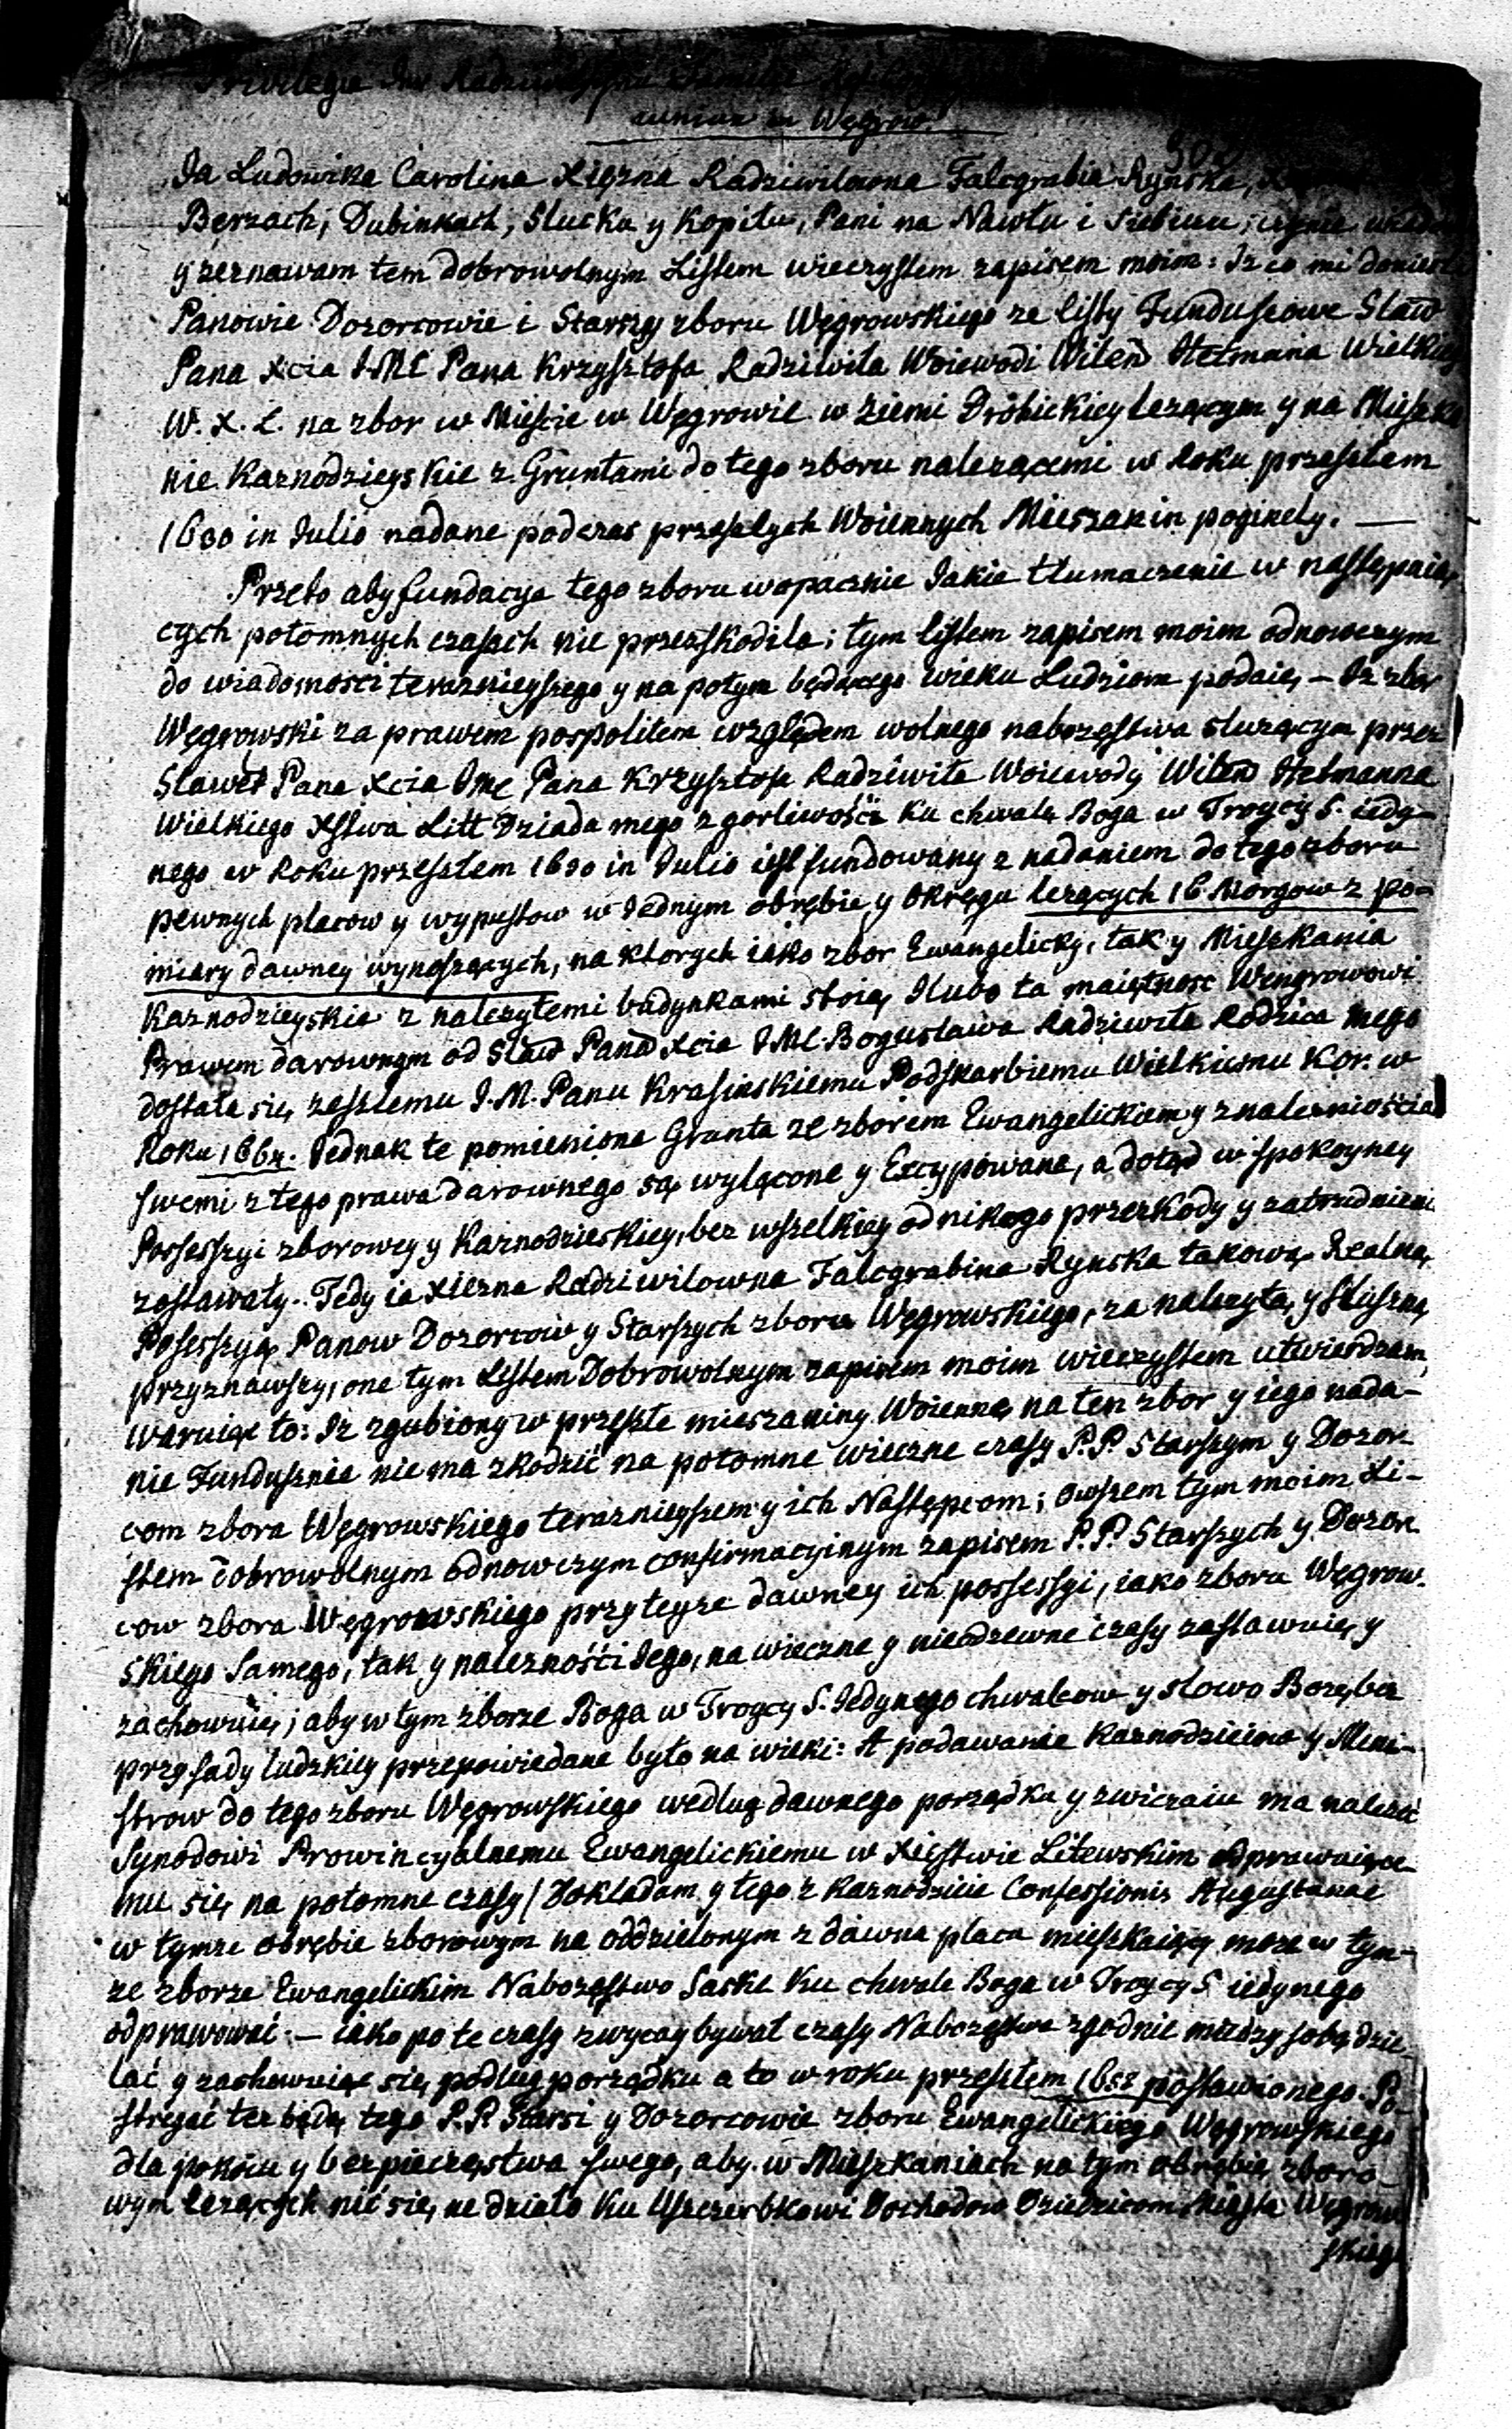 Privilegia
in Węgrow.
Ja Ludowika Carolina Xięzna Radziwilowna Falcgrabia Rynska,
Berzach, Dubinkach, Slucku y Kopilu, Pani na Nawlu i Siebiezu, czynie
y zeznawam tem dobrowolnym Listem wieczystem zapisem moim: Iz co mi doniesli
Panowie Dozorcowie i Starszy zboru Węgrowskiego ze listy Fundusfowe Slaw
Pana Xcia JMC Pana Krzysztofa Radziwila Woiewodi Wilen Hetmana Wielkieg
W. X. L. na zbor w Mieście w Węgrowie w ziemi Drohickiey lezącym y na Mieszka
nie Kaznodzieyskie z Gruntami do tego zboru nalezącemi w Roku przeszlem
1630 in Julio nadane podczas przeszlych Woiennych Mieszanin poginely. —
Przeto aby fundacya tego zboru wopacznie Jakie tlumaczenie w następuią
cych potomnych czasach nie przeszkodila; tym listem zapisem moim odnowczym
do wiadomosci teraznieyszego y na potym będącego wieku Ludziom podaię, — Iz zbor
Węgrowski za prawem pospolitem względem wolnego nabozęstwa sluzącym przez
Slawet Pana Xcia JMC Pana Krzysztofa Radziwila Woiewody Wilen Hetmanna
Wielkiego Xstwa Litt Dziada mego z gorliwości ku chwale Boga w Troycy S. iedy-
nego w Roku przeszlem 1630 in Julio iest fundowany z nadaniem do tego zboru
pewnych placow y wypustow w Jednym obrębie y Okręgu lezących 16 Morgow z po-
miary dawney wynoszących, na ktorych iako zbor Ewangelicky, tak y Mieszkania
Kaznodzieyskie z nalezytemi budynkami stoią, Ilubo ta maiętnosc Wengrowowi
Prawem darownym od Slaw Pana Xcia JMC. Boguslawa Radziwila Rodzica mego
dostala się, zeszlemu J.M. Panu Krasinskiemu Podskarbiemu Wielkiemu Kor. w
Roku 1664. Jednak te pomienione Grunta ze zborem Ewangelickiem y z nalezniościa
swemi z tego prawa darownego są wylącone y Excypowane, a dotąd w spokoyney
Possessyi zborowey y Kaznodzieskiey, bez wszelkiey od nikogo przeszkody y zatrudnieni
zostawaly. Tedy ia Xiezna Radziwilowna Falcgrabina Rynska takową Realną
Posessyą Panow Dozorcow y Starszych zboru Węgrowskiego, za nalezytą, y sluszną
przyznawszy, one tym Listem Dobrowolnym zapisem moim wieczystem utwierdzam,
waruiąc to: Iz zgubiony w przeszle mieszaniny Woienne na ten zbor y iego nada-
nie Fundusznie nie ma zkodzić na potomne wieczne czasy P.P. Starszym y Dozor
com zboru Węgrowskiego teraznieyszem y ich Następcom; owszem tym moim Li-
stem dobrowolnym odnowczym confirmacyinym zapisem P.P. Starszych y Dozor
cow zboru Węgrowskiego przy teyze dawney ich possessyi, iako zboru Węgrow.
skiego Samego, tak y nalezności Jego, na wieczne y nieodzewne czasy zastawuię, y
zachowuię; aby w tym zborze Boga w Troycy S. Jedynego chwalcow y slowo Bozę bez
przysady ludzkiey przepowiedane bylo na wieki: A podawanie Kaznodzieiow y Mini-
strow do tego zboru Węgrowskiego wedlug dawnego porządku y zwiczaiu ma nalezec
Synodowi Prowincyalnemu Ewangelickiemu w Xięstwie Litewskim odprawuiące
mu się, na potomne czasy / Dokladam y tego z Kaznodzieie Confessionis Augustanae
w tymze obrębie zborowym na oddzielonym z dawna placu mieszkaiący moze w tym-
ze zborze Ewangelickim Nabozęstwo Saskie ku chwale Boga w Troycy S iedynego
odprawowac. — iako po te czasy zwyczay bywal czasy Nabozęstwa zgodnie miedzy sobą dzie-
lać y zachowuiąc się, podlug porządku a to w roku przeszlem 1652 postawionego. Po-
strzegać tez będą tego P.P. Starsi y Dozorcowie zboru Ewangelickiego Węgrowskiego
dla pokoiu y bezpieczęstwa swego, aby w Mieszkaniach na tym obrębie zboro
wym lezących nić się, ne dzialo ku Uszczerbkowi Dochodow Dziedzicom Miasta Węgrow
skiego